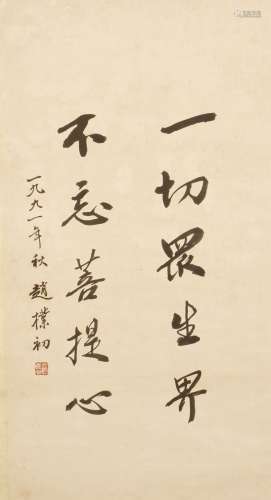 一切眾生界
不忘菩提心
一九九一年秋 趙樸初